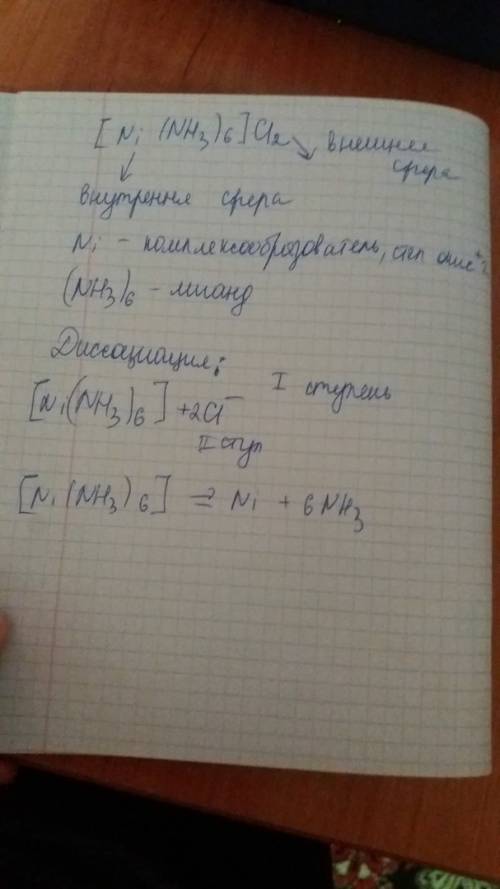 [Ni (NH3)6]Cl2 внешняя
сфера
внутрення сфера
Ni – комплексообразователь, степ окис +2
(NH3)6 – лиганд
Диссациация:
[Ni(NH3)6] +2Cl⁻ I ступень
II ступ
[Ni (NH3)6] ⇄ Ni + 6NH3